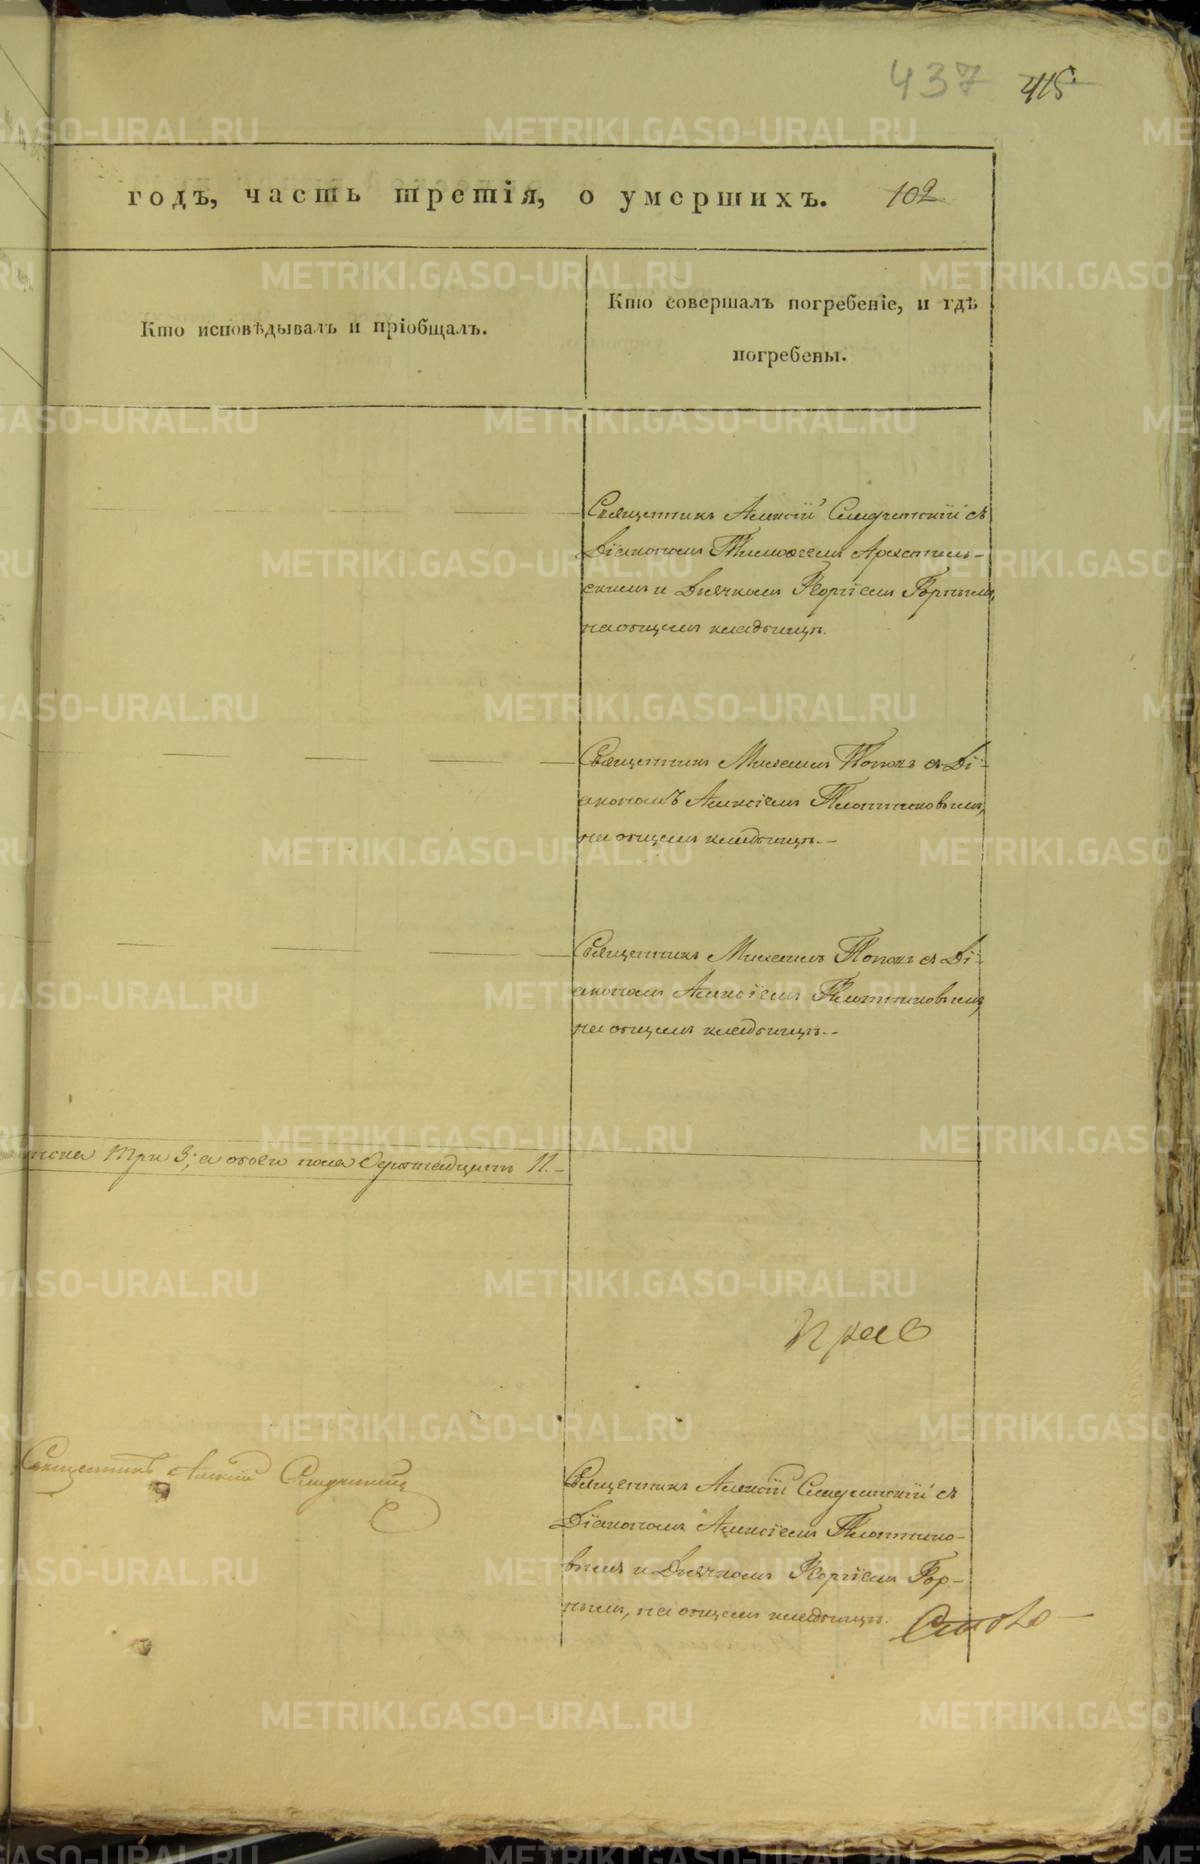 437 415
годъ, часть третія, о умершихъ. 102
Кто исповѣдывалъ и пріобщалъ.
Кто совершалъ погребеніе, и гдѣ
погребены.
Священникъ Алексій съ
Діакономъ Тимоѳеемъ Архангель-
скимъ и Дьячкомъ Георгіемъ Горнымъ,
на общемъ кладбищѣ.
Священникъ Михаилъ Поповъ съ Ді-
акономъ Алексіемъ Плотниковымъ,
на общемъ кладбищѣ.-
Священникъ Михаилъ Поповъ съ Ді-
акономъ Алексіемъ Плотниковымъ,
на общемъ кладбищѣ.-
пола три 3; а обоего пола одиннадцать 11.-
Священникъ Алексій
Священникъ Алексій съ
Діакономъ Алексіемъ Плотнико-
вымъ и Дьячкомъ Георгіемъ Гор-
нымъ, на общемъ кладбищѣ.
METRIKI.GASO-URAL.RU